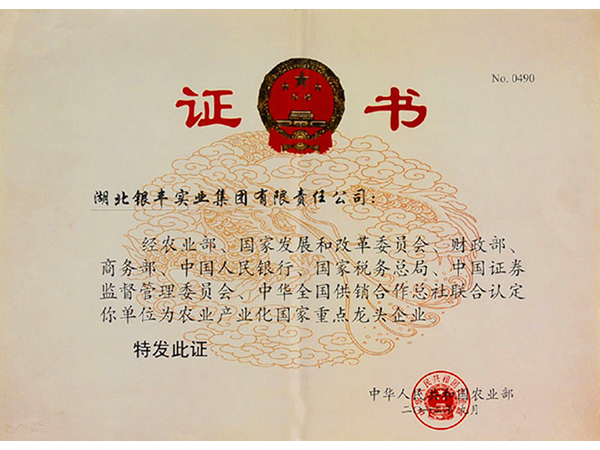 No. 0490
证书
湖北银丰实业集团有限责任公司：
经农业部、国家发展和改革委员会、财政部、
商务部、中国人民银行、国家税务总局、中国证券
监督管理委员会、中华全国供销合作总社联合认定
你单位为农业产业化国家重点龙头企业
特发此证
中华人民共和国农业部